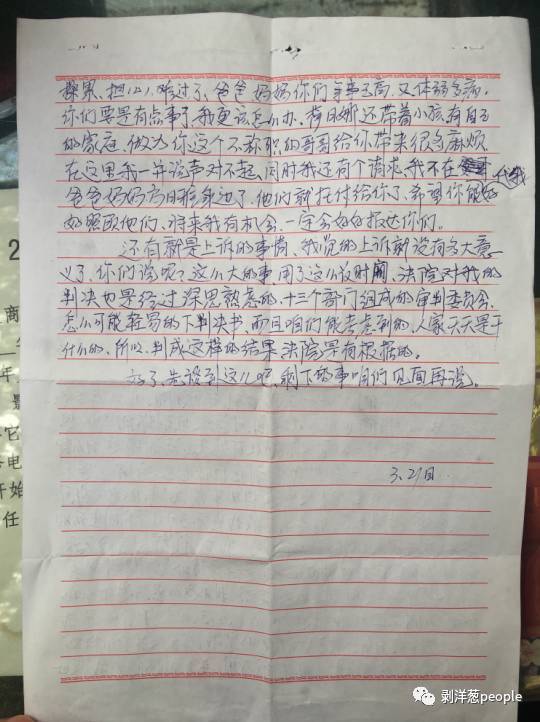 操累、担心、难过了、爸爸妈妈你们年事已高、又体弱多病
你们要是有点事了、我更该怎么办、荷日娜还带着小孩有自己
的家庭、做为你这个不称职的哥哥给你带来很多麻烦
在这里我一并说声对不起、同时我还有个请求、我不在
爸爸妈妈身边了、他们就托付给你了、希望你能好
好照顾他们、将来我有机会、一定会好好报达你们。
还有就是上诉的事情、我觉的上诉就没有多大意
义了、你们说呢？这么大的事、用了这么长时间、法院对我的
判决也是经过深思熟虑的、十三个部门组成的审判委员会、
怎么可能轻易的下判决书、而且咱们能考虑到的、人家天天是干
什么的、所以、判成这样的结果法院是有根据的。
好了、先谈到这儿吧、剩下的事咱们见面再说。
3、21日
2
商
年
它
电
开始
任
剥洋葱people